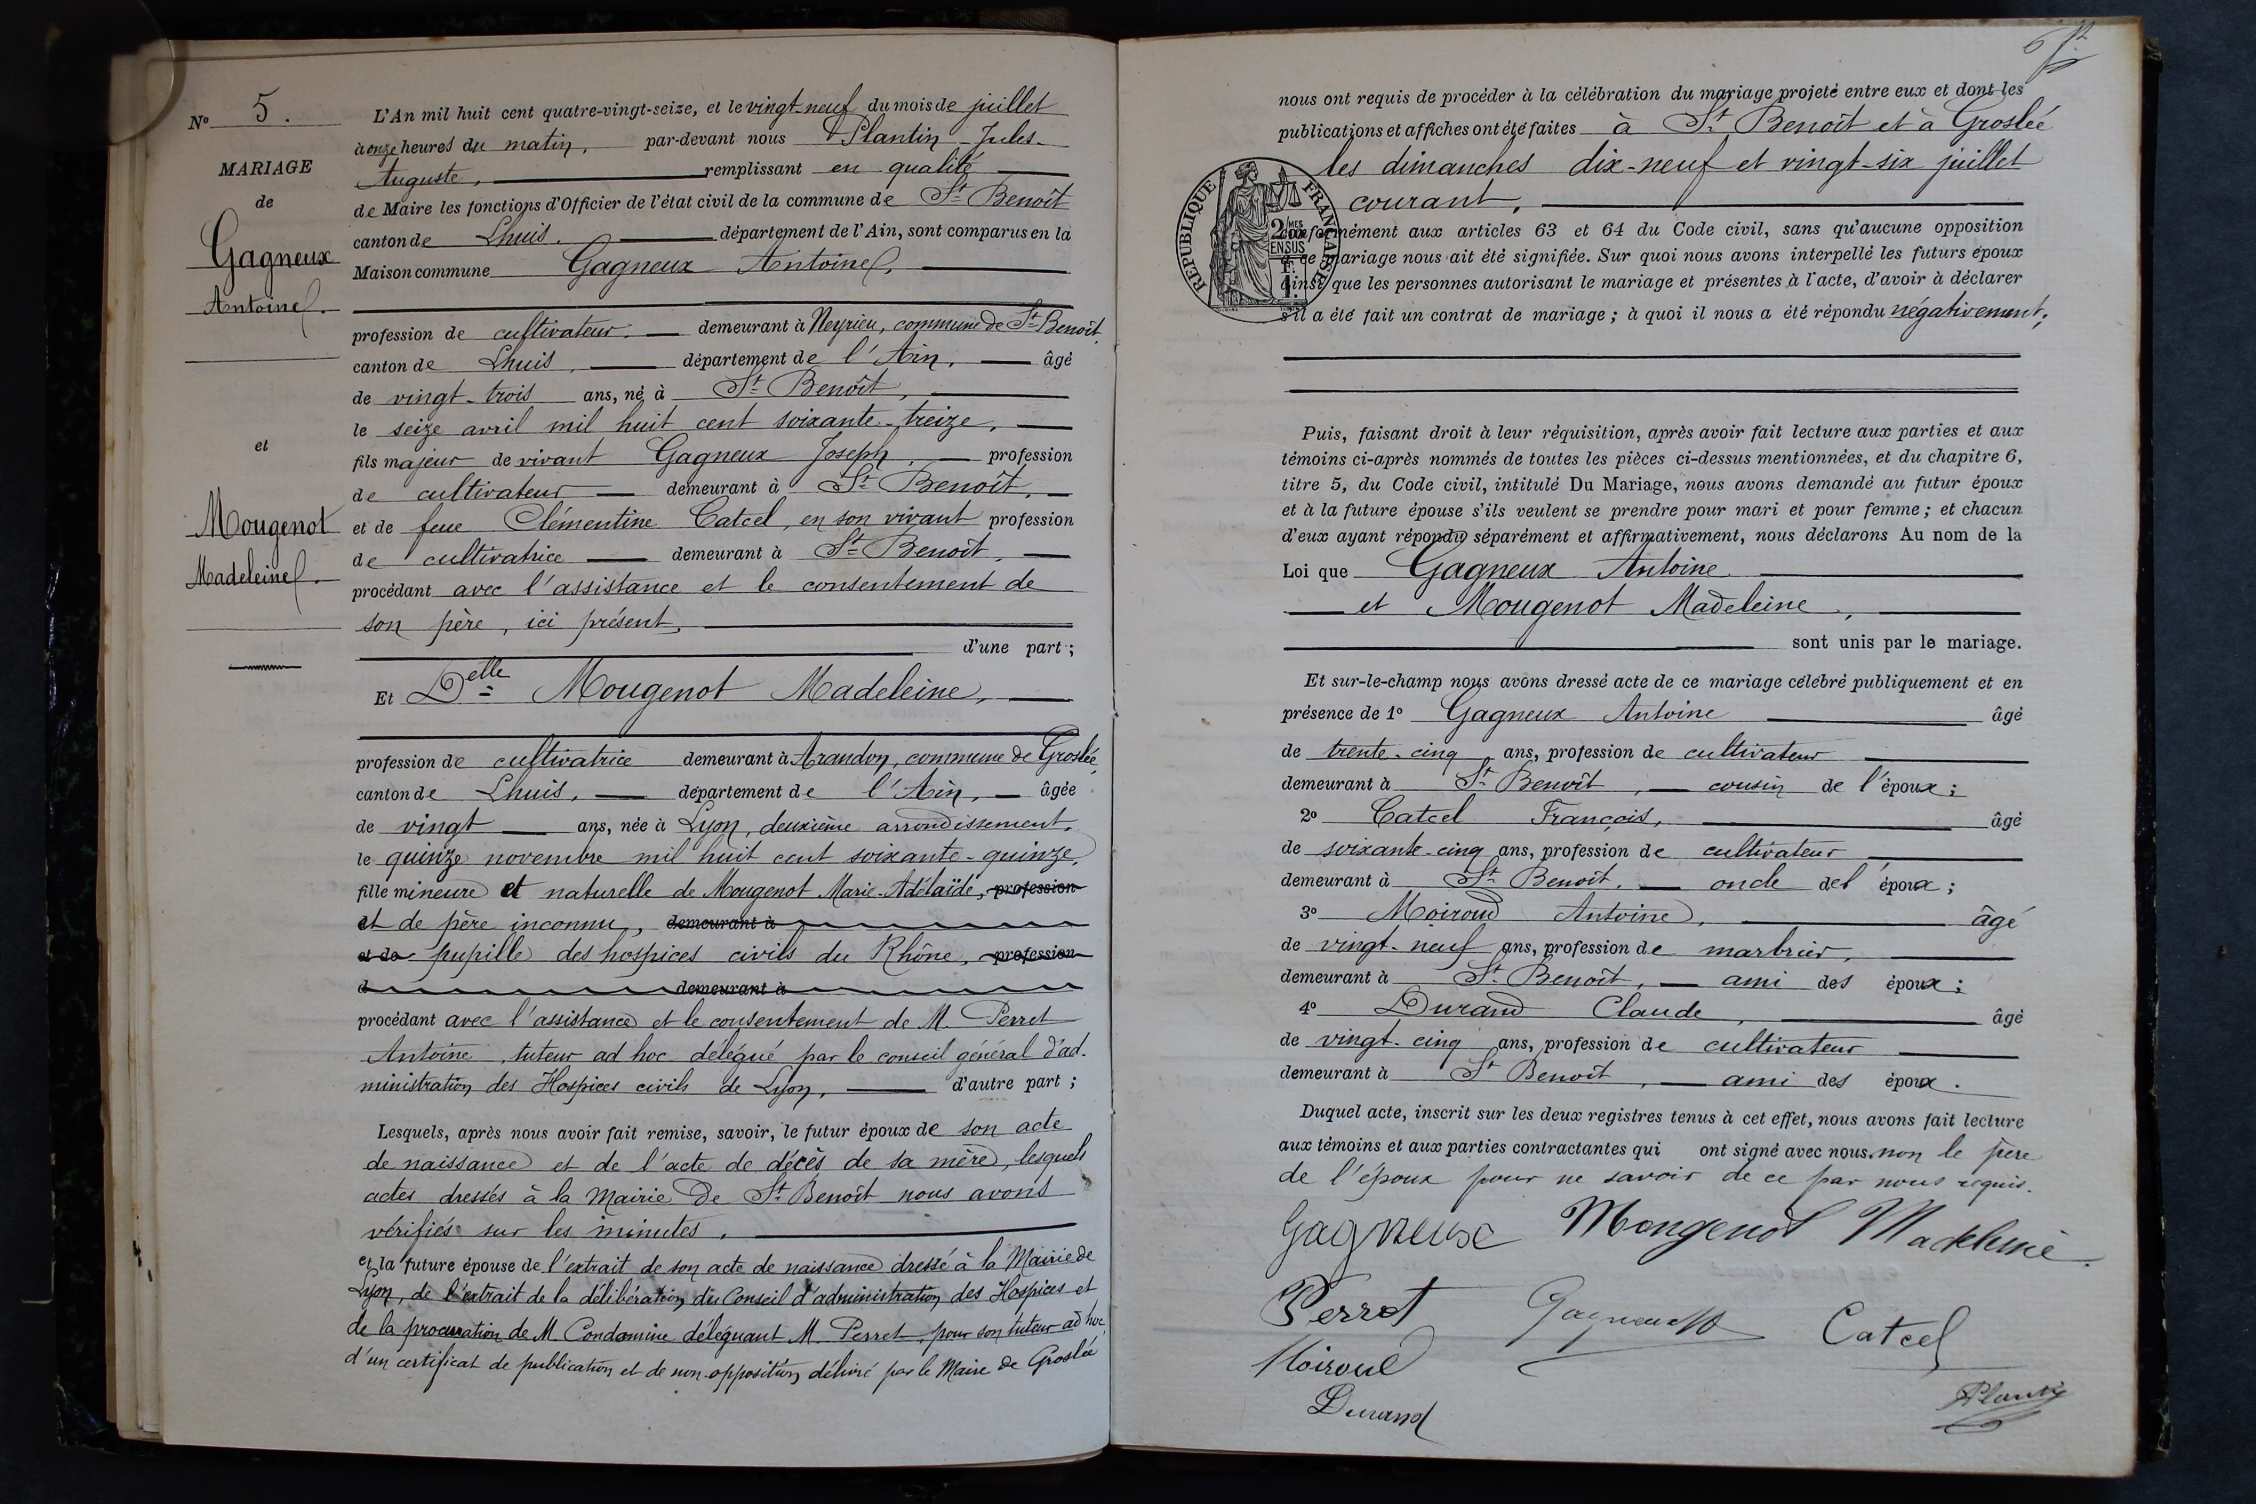 N° 5.
MARIAGE
de
Gagneux
Antoine.
et
Mougenot
Madeleine.
L'An mil huit cent quatre-vingt-seize, et le vingt-neuf du mois de juillet
à onze heures du matin, par-devant nous Plantin Jules-
Auguste, remplissant en qualité
de Maire les fonctions d'Officier de l'état civil de la commune de St Benoît
canton de Lhuis, département de l'Ain, sont comparus en la
Maison commune Gagneux Antoine,
profession de cultivateur, demeurant à Neyrieu, commune de St Benoît,
canton de Lhuis, département de l'Ain, âgé
de vingt-trois ans, né à St Benoît,
le seize avril mil huit cent soixante-treize,
fils majeur de vivant Gagneux Joseph, profession
de cultivateur demeurant à St Benoît,
et de feue Clémentine Catcel, en son vivant profession
de cultivatrice demeurant à St Benoît,
procédant avec l'assistance et le consentement de
son père, ici présent,
d'une part;
Et Delle Mougenot Madeleine,
profession de cultivatrice demeurant à Arandon, commune de Groslée,
canton de Lhuis, département de l'Ain, âgée
de vingt ans, née à Lyon, deuxième arrondissement,
le quinze novembre mil huit cent soixante-quinze,
fille mineure et naturelle de Mougenot Marie-Adélaïde, profession
et de père inconnu, demeurant à
et de pupille des hospices civils du Rhône, profession
d demeurant à
procédant avec l'assistance et le consentement de M. Perret
Antoine, tuteur ad hoc délégué par le conseil général d'ad-
ministration des Hospices civils de Lyon, d'autre part;
Lesquels, après nous avoir fait remise, savoir, le futur époux de son acte
de naissance et de l'acte de décès de sa mère, lesquels
actes dressés à la Mairie de St Benoît nous avons
vérifiés sur les minutes,
et la future épouse de l'extrait de son acte de naissance dressé à la Mairie de
Lyon, de l'extrait de la délibération du Conseil d'administration des Hospices et
de la procuration de M Condamine déléguant M. Perret, pour son tuteur ad hoc,
d'un certificat de publication et de non-opposition délivré par le Maire de Groslée
nous ont requis de procéder à la célébration du mariage projeté entre eux et dont les
publications et affiches ont été faites à St Benoît et à Groslée
les dimanches dix-neuf et vingt-six juillet
courant,
REPUBLIQUE FRANÇAISE
2/MES EN SUS
conformément aux articles 63 et 64 du Code civil, sans qu'aucune opposition
à ce mariage nous ait été signifiée. Sur quoi nous avons interpellé les futurs époux
ainsi que les personnes autorisant le mariage et présentes à l'acte, d'avoir à déclarer
s'il a été fait un contrat de mariage; à quoi il nous a été répondu négativement;
Puis, faisant droit à leur réquisition, après avoir fait lecture aux parties et aux
témoins ci-après nommés de toutes les pièces ci-dessus mentionnées, et du chapitre 6,
titre 5, du Code civil, intitulé Du Mariage, nous avons demandé au futur époux
et à la future épouse s'ils veulent se prendre pour mari et pour femme; et chacun
d'eux ayant répondu séparément et affirmativement, nous déclarons Au nom de la
Loi que Gagneux Antoine
et Mougenot Madeleine,
sont unis par le mariage.
Et sur-le-champ nous avons dressé acte de ce mariage célébré publiquement et en
présence de 1° Gagneux Antoine âgé
de trente-cinq ans, profession de cultivateur
demeurant à St Benoît, cousin de l'époux;
2° Catcel François, âgé
de soixante-cinq ans, profession de cultivateur
demeurant à St Benoît, oncle de l'époux;
3° Moiroud Antoine, âgé
de vingt-neuf ans, profession de marbrier,
demeurant à St Benoît, ami des époux;
4° Durand Claude, âgé
de vingt-cinq ans, profession de cultivateur
demeurant à St Benoît, ami des époux.
Duquel acte, inscrit sur les deux registres tenus à cet effet, nous avons fait lecture
aux témoins et aux parties contractantes qui ont signé avec nous, non le père
de l'époux pour ne savoir de ce par nous requis.
Gagneux Mongenot Madeleine
Perret Gagneux Catcel
Moiroud
Durand Plantin